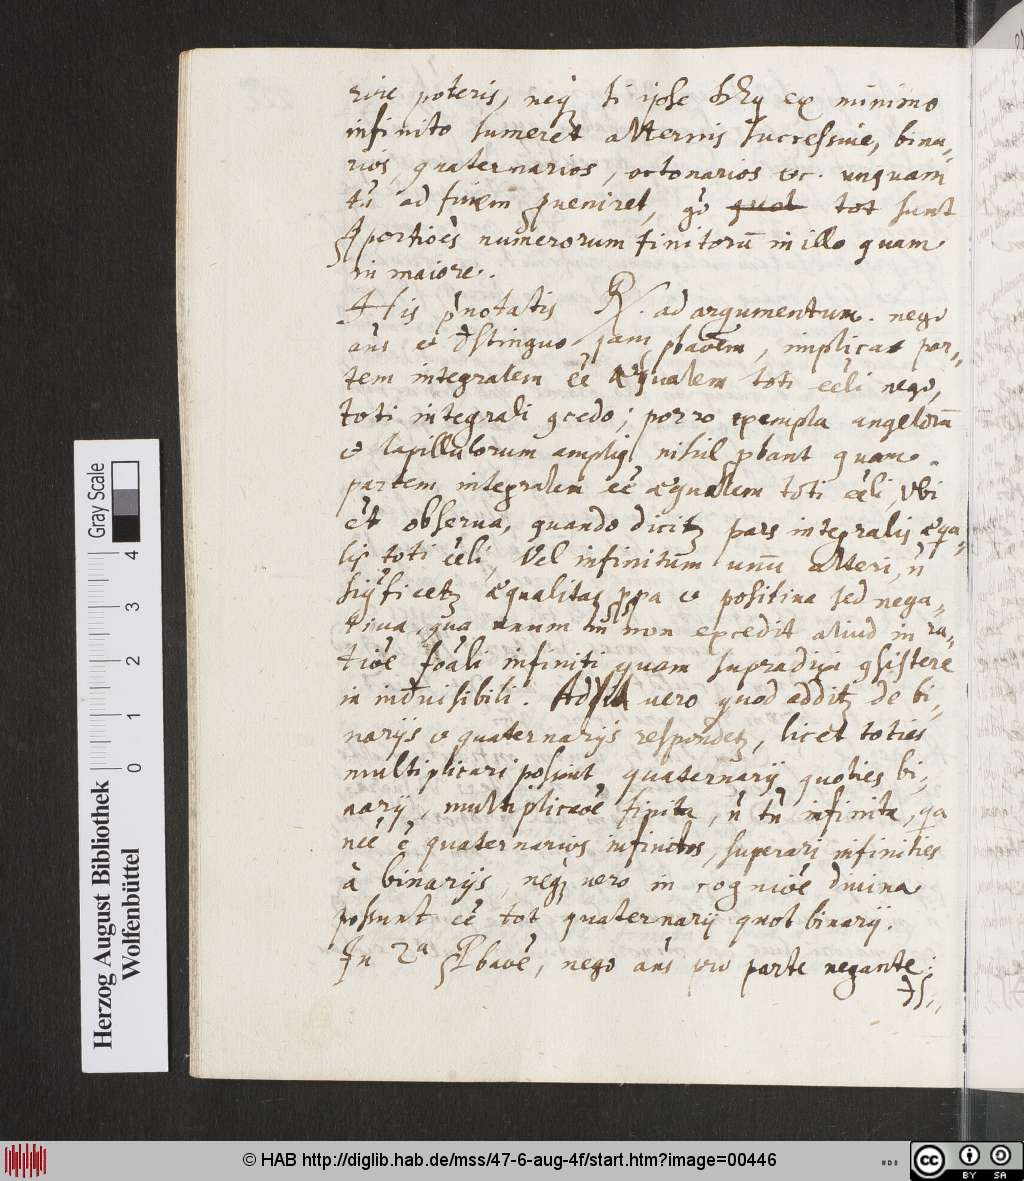 rire poteris, neq₃ si ipse ex minimo
infinito sumeret alternis successive, bina„
rios, quaternarios, octonarios &c. unquam
tn̄ ad finem pueniret, g̊ quot tot sunt
pportiões numerorum finitorū in illo quam
in maiore.
His p̄notatis R. ad argumentum. nego
añs et distinguo jam pbaōem, implicat par„
tem integralem eē æqualem toti eēli nego,
toti integrali ↄcedo; porro exempla angelorū
et lapillulorum ampliq nihil pbant quam
partem integralem eē æqualem toti eēli, Vbi
et observa, quando dicitꝫ pars integralis æqa„
lis toti eēli, Vel infinitum unū alteri, n̄
sig̃ficetꝫ æqualitas ppa et positiva sed nega„
tiva, qua unum non excedit aliud in ra„
tiōe foāli infiniti quam supradixi ↄsistere
in indivisibili. Ad vero quod additꝫ de bi„
narijs et quaternarijs respondetꝫ, licet toties
multiplicari possint quaternarij quoties bi„
narij, multiplicaōe finita, n̄ tn̄ infinita, qa
neē ē quaternarios infinitos, superari infinities
à binarijs, neq₃ vero in cogniōe divina
possunt eē tot quaternarij quot binarij.
In 2ᵃ pbaōe, nego añs pro parte negante:
Herzog August Bibliothek
Wolfenbüttel
Gray Scale
0 1 2 3 4
© HAB http://diglib.hab.de/mss/47-6-aug-4f/start.htm?image=00446
cc BY SA